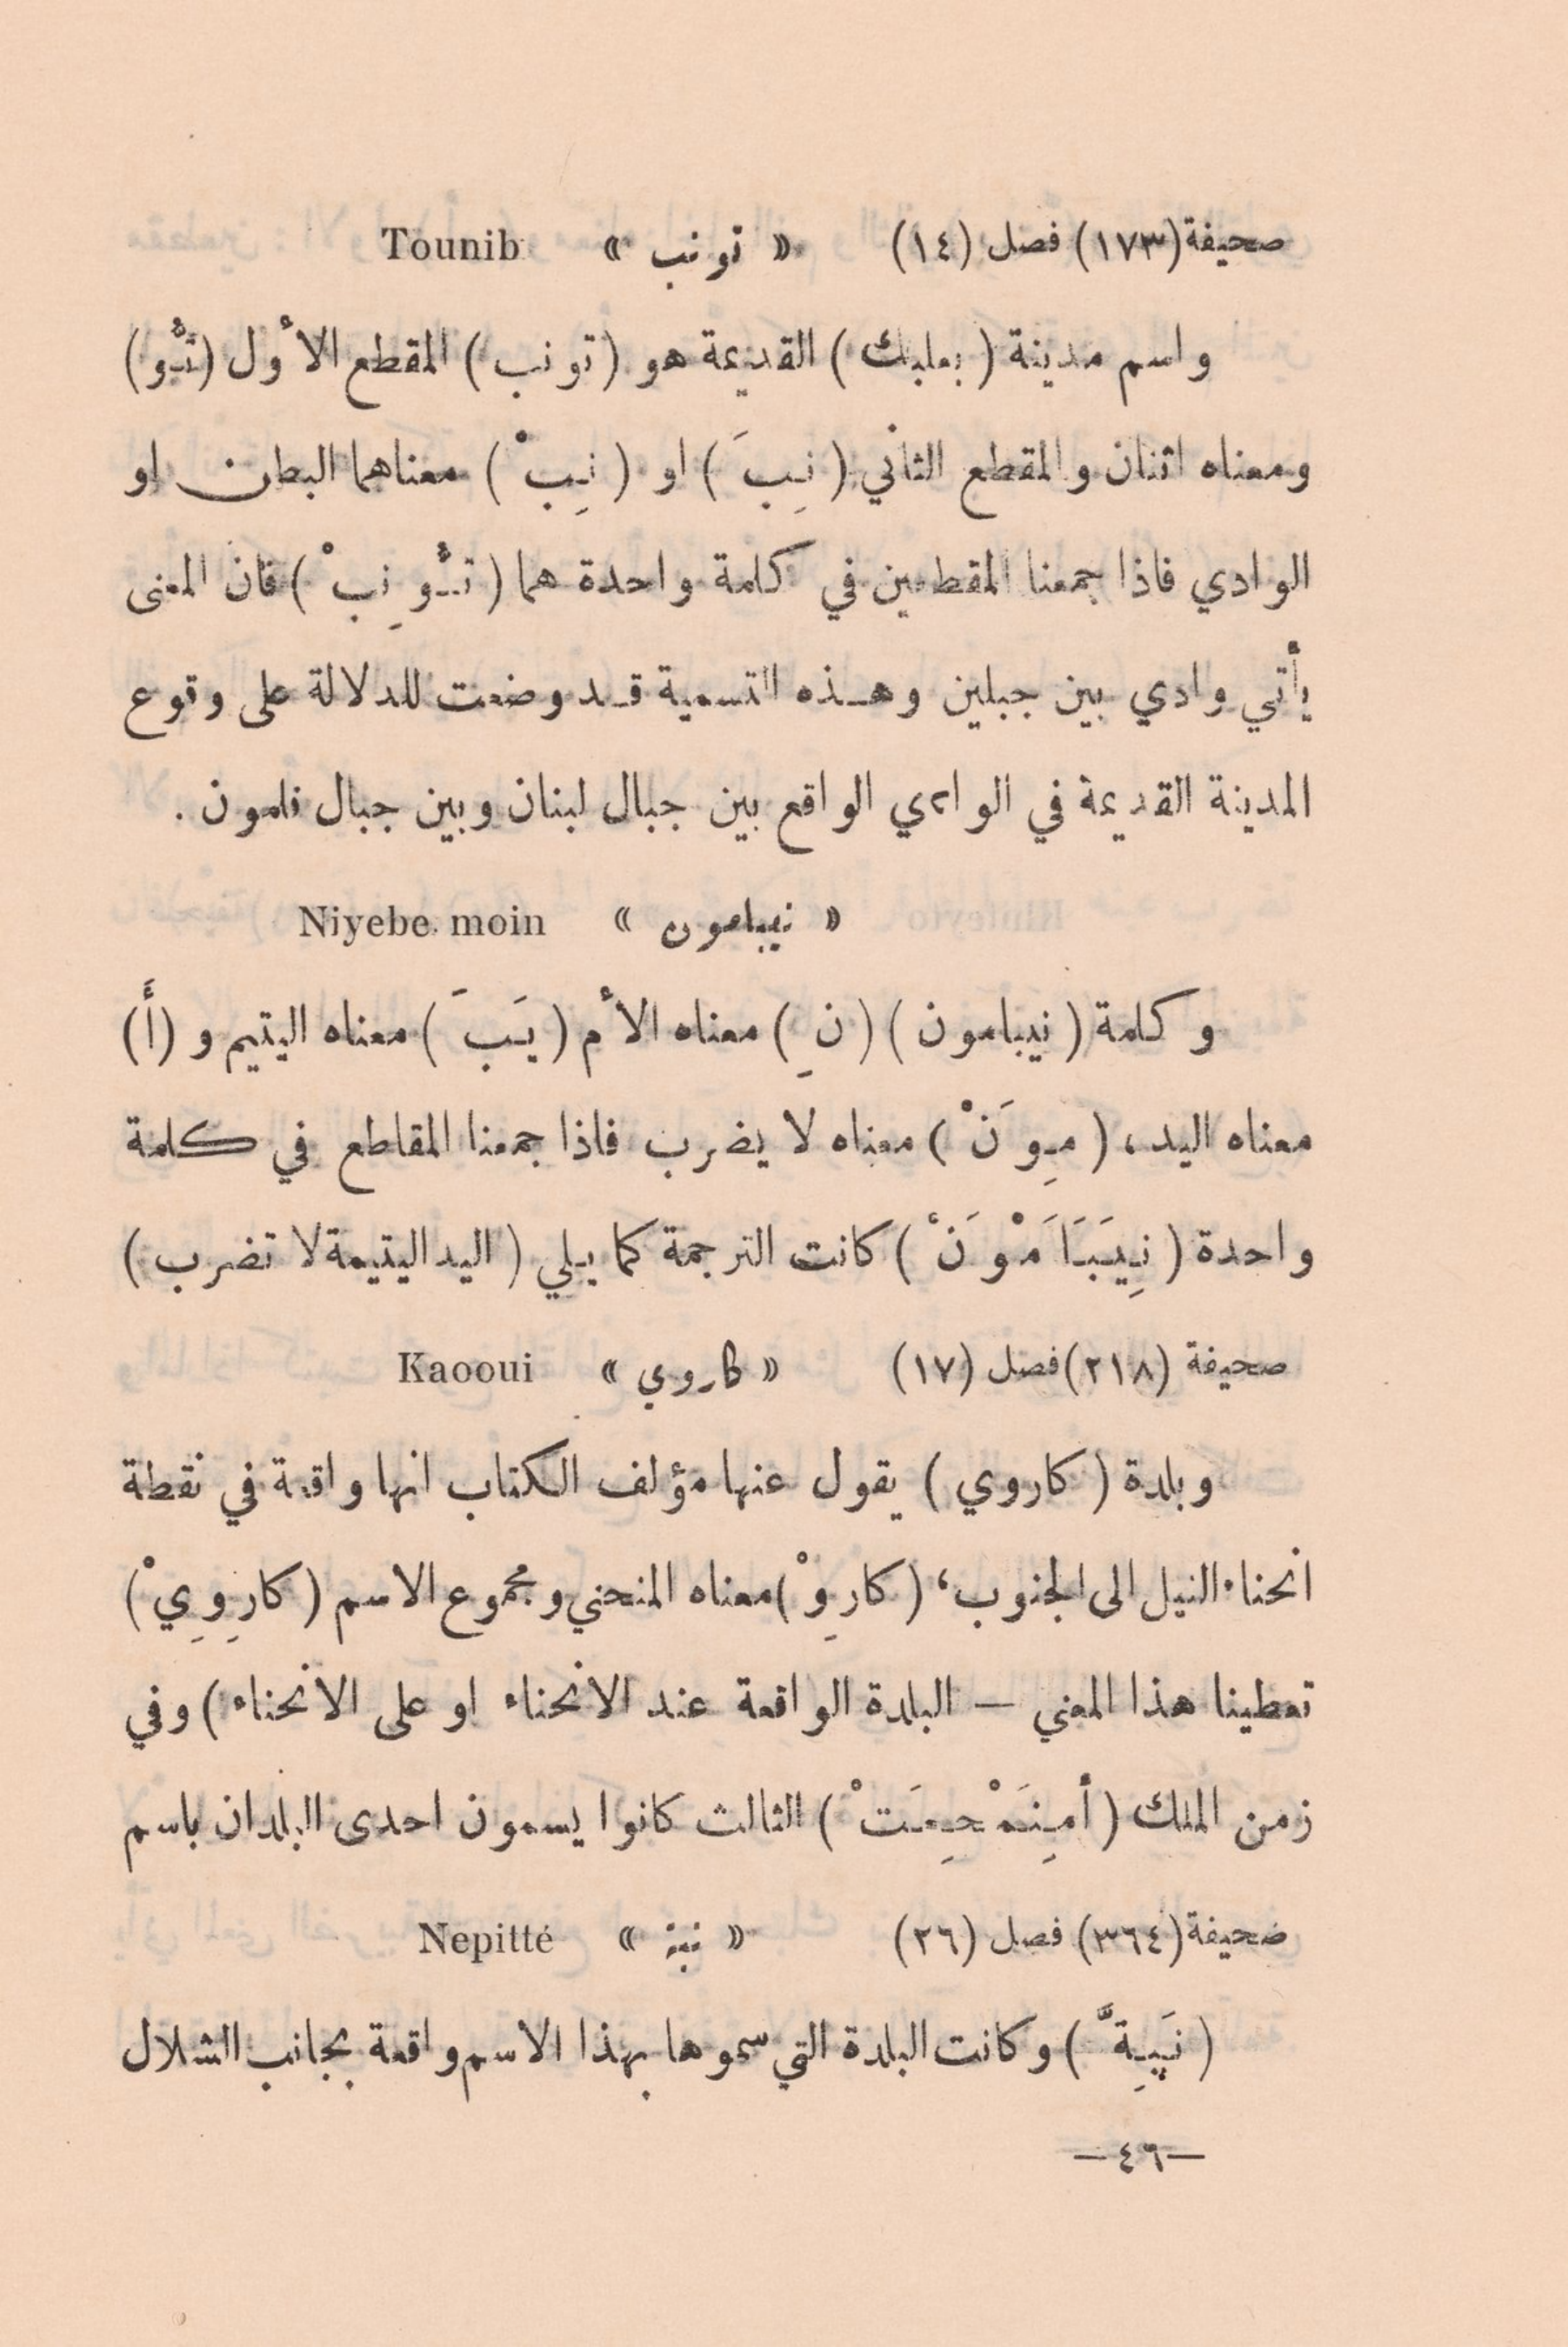 صحيفة (١٧٣) فصل (١٤) « تونب » Tounib
واسم مدينة ( بعلبك ) القديمة هو ( تونب ) المقطع الأول ( تُؤو )
ومعناه اثنان والمقطع الثاني ( نِبَ ) او ( نِبْ ) معناهما البطن او
الوادي فاذا جمعنا المقطعين في كلمة واحدة هما ( تـؤونِبْ ) فان المعنى
يأتي وادي بين جبلين وهذه التسمية قد وضعت للدلالة على وقوع
المدينة القديمة في الوادي الواقع بين جبال لبنان وبين جبال نامون .
« نيبامون » Niyebe moin
وكلمة ( نيبامون ) ( نِ ) معناه الأم ( يَبَ ) معناه اليتيم و ( أَ )
معناه اليد ، ( مِوَنْ ) معناه لا يضرب فاذا جمعنا المقاطع في كلمة
واحدة ( نِيَبَاَمْوَنْ ) كانت الترجمة كما يلي ( اليد اليتيمة لا تضرب )
صحيفة (٢١٨) فصل (١٧) « كاروي » Kaooui
وبلدة ( كاروي ) يقول عنها مؤلف الكتاب انها واقعة في نقطة
انحناء النيل الى الجنوب ، ( كارِوْ ) معناه المنحني ومجموع الاسم ( كارِوِيْ )
تعطينا هذا المعنى — البلدة الواقعة عند الانحناء او على الانحناء ) وفي
زمن الملك ( أمِنَمْحِمَتْ ) الثالث كانوا يسمون احدى البلدان باسم
صحيفة (٣٦٤) فصل (٢٦) « نبة » Nepitté
( نَپِةَّ ) وكانت البلدة التي سموها بهذا الاسم واقعة بجانب الشلال
—٤٦—